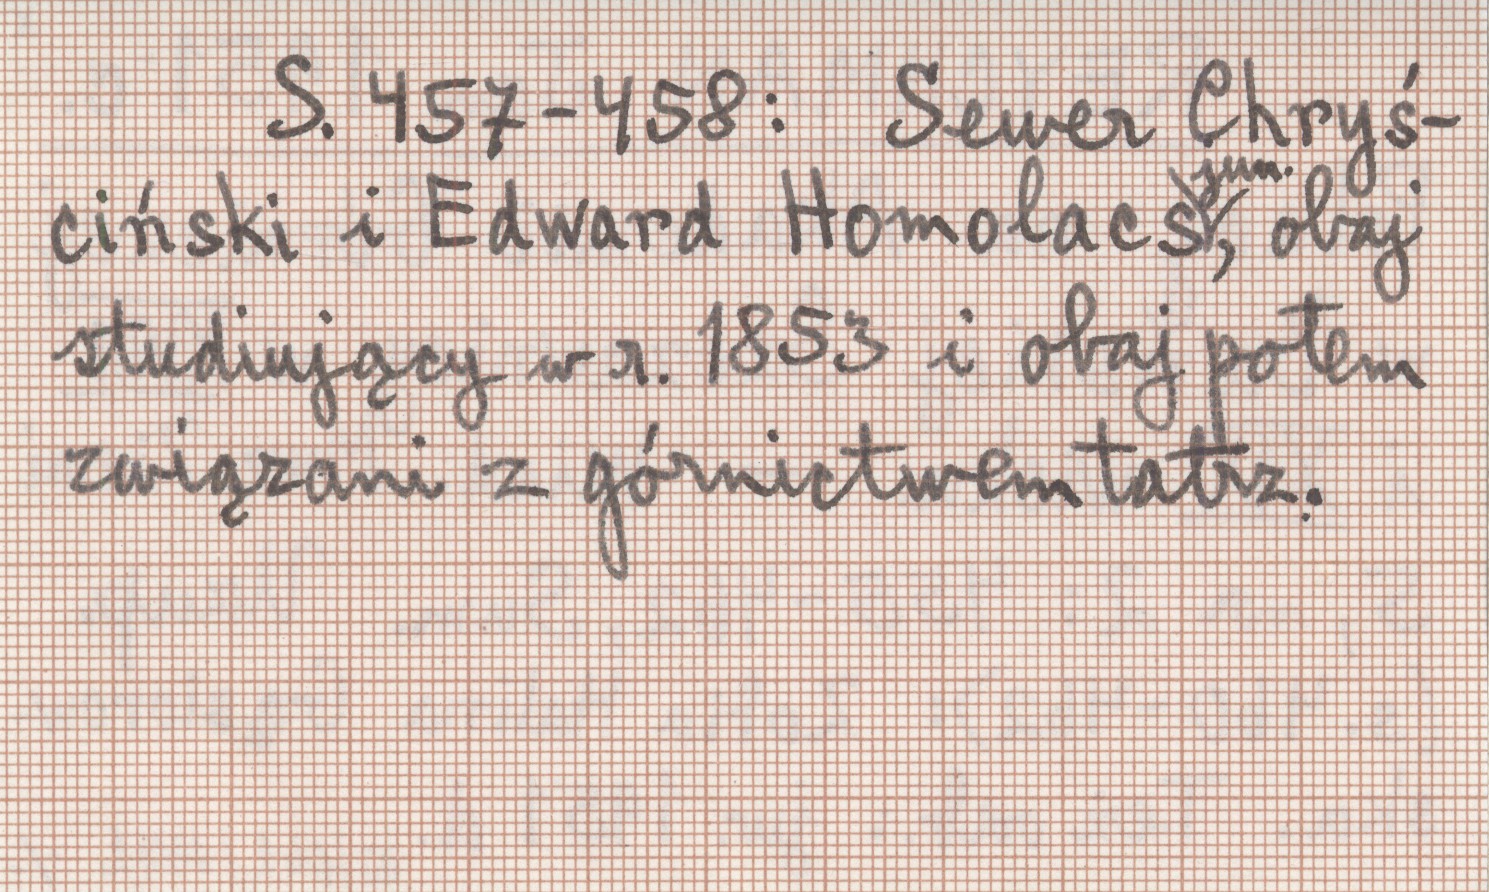 S. 457-458: Sewer Chryś-
ciński i Edward Homolacs jun., obaj
studiujący w r. 1853 i obaj potem
związani z górnictwem tatrz.